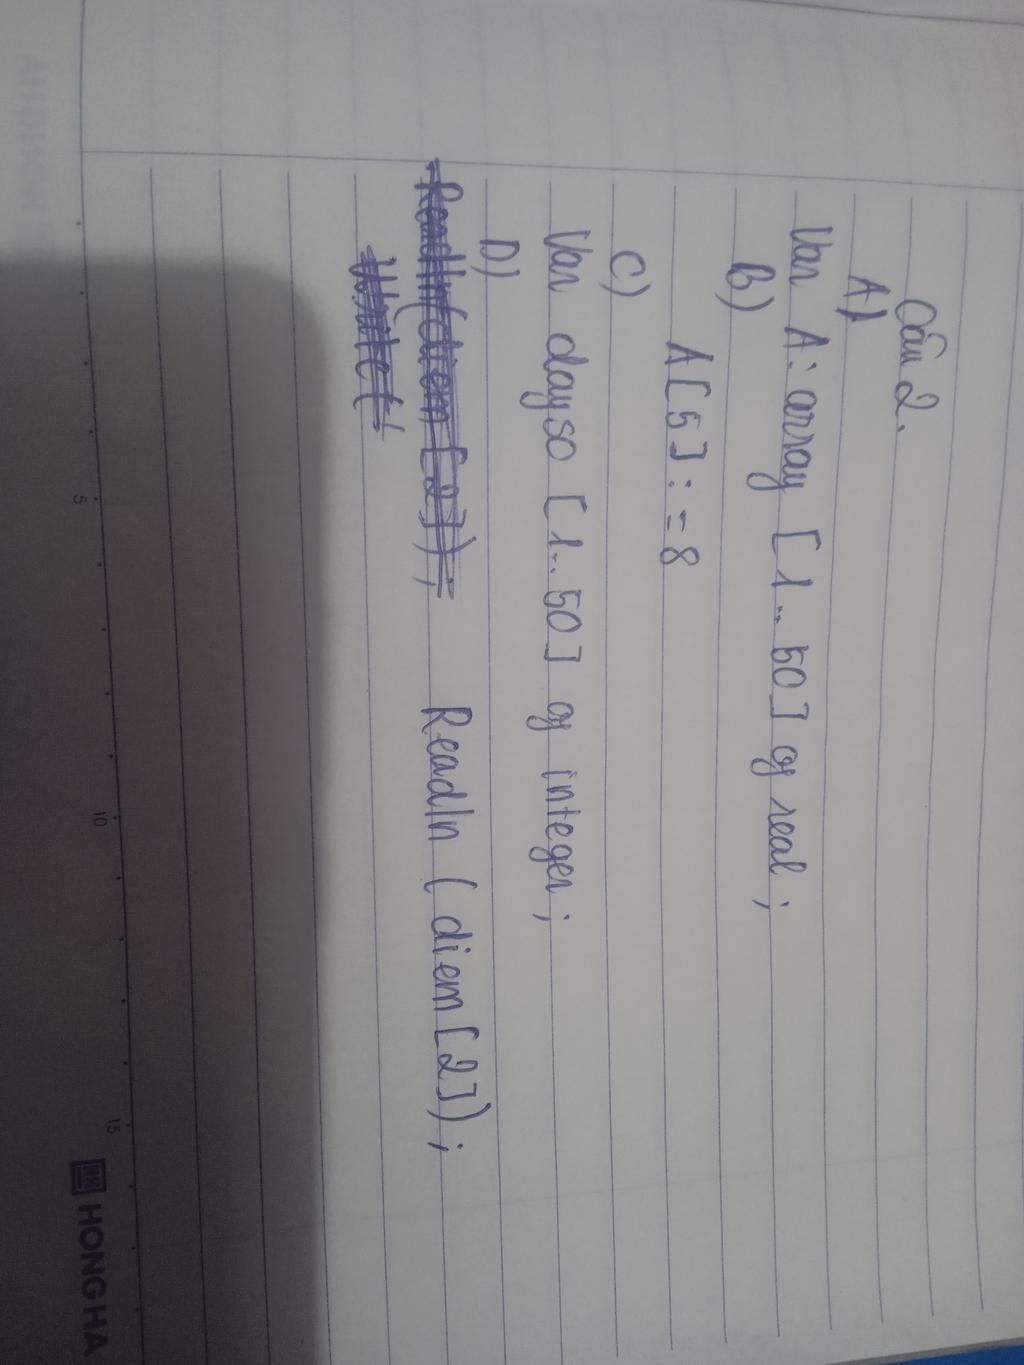 Câu 2.
A)
Var A: array [1..50] of real;
B)
A[5]:=8
C)
Var dayso [1..50] of integer;
D)
Readln(diem[2]); Readln (diem[2]);
Write(
5 10 15 HONG HA